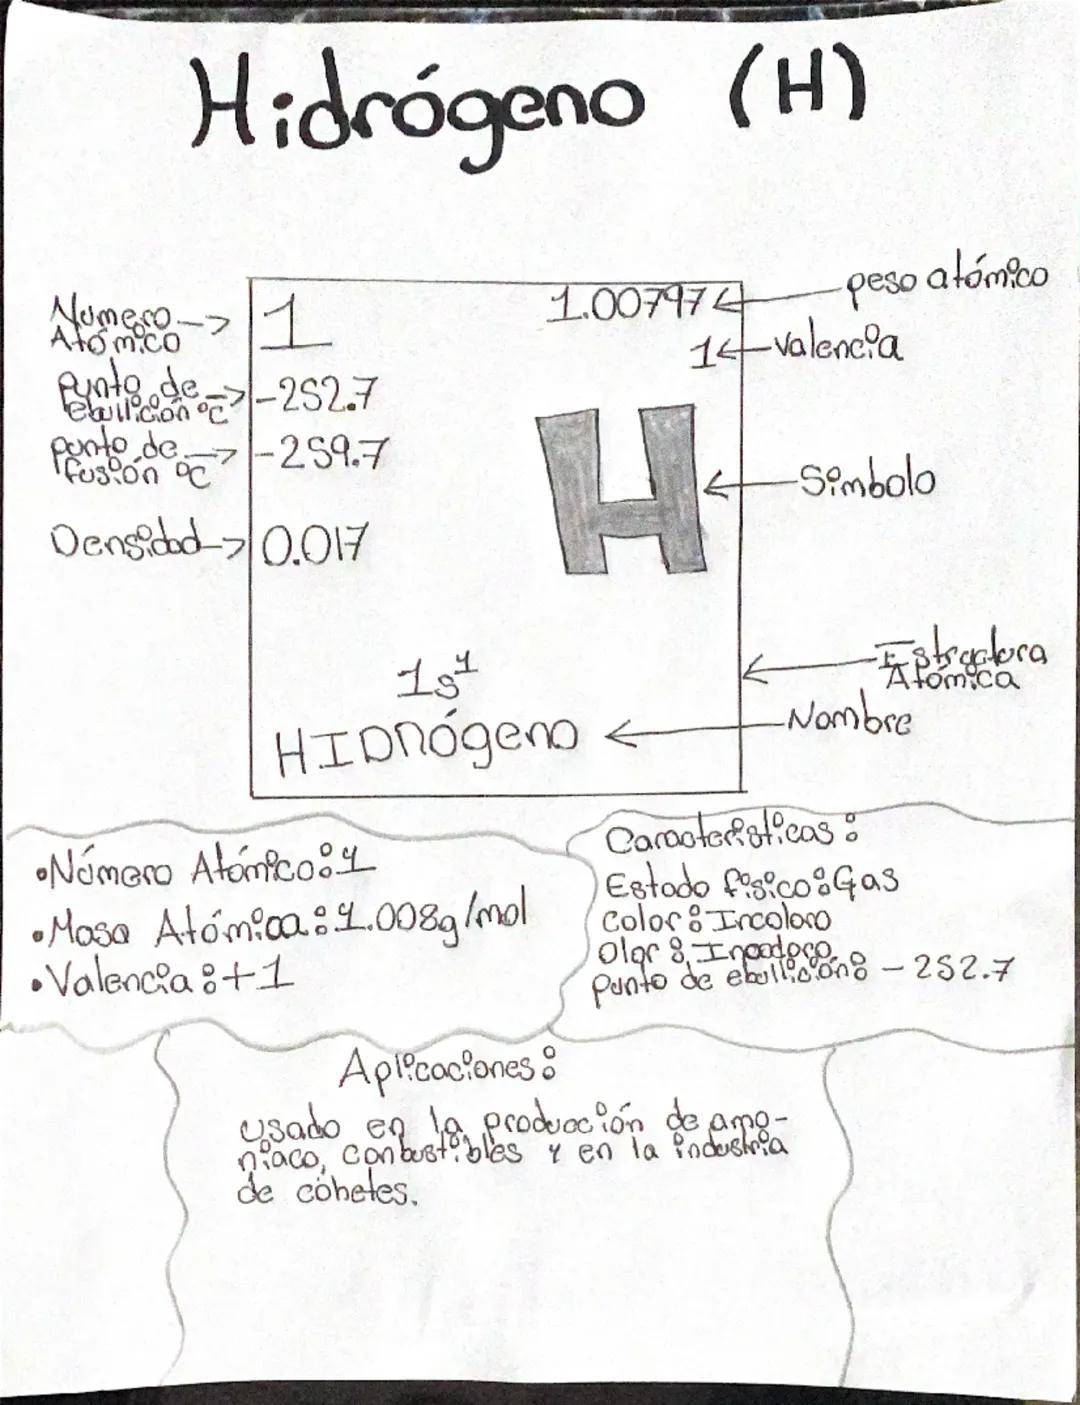 Hidrógeno (H)
Número Atómico
1
1.00797
peso atómico
1
Valencia
punto de ebullición °C
-252.7
punto de fusión °C
-259.7
Símbolo
H
Densidad
0.017
1s¹
Estructura Atómica
HIDRógeno
Nombre
•Número Atómico: 1
•Masa Atómica: 1.008g/mol
•Valencia: +1
Características:
Estado físico: Gas
Color: Incoloro
Olor: Inodoro
punto de ebullición: -252.7
Aplicaciones:
usado en la producción de amo-
niaco, conbustibles y en la industria
de cohetes.